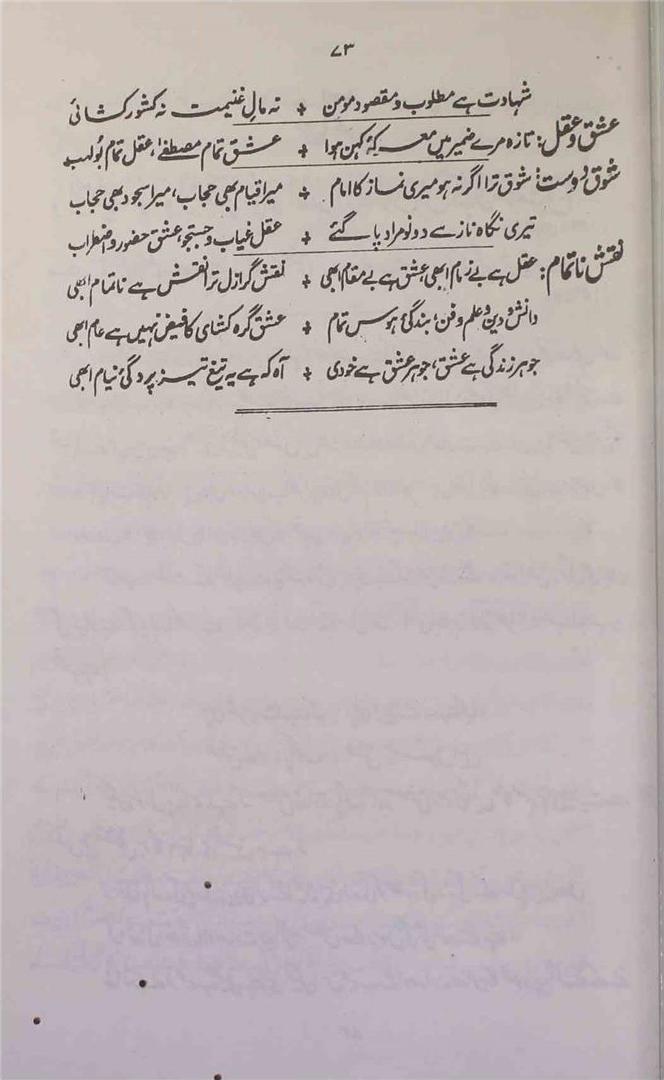 ۷۳
شہادت ہے مطلوب و مقصود مومن ٭ نہ مالِ غنیمت نہ کشور کشائی
عشق و عقل: تازہ مرے ضمیر میں معرکۂ کہن ہوا ٭ عشق تمام مصطفےٰؐ، عقل تمام بُولہب
شوقِ دوست: شوق ترا اگر نہ ہو میری نماز کا امام ٭ میرا قیام بھی حجاب، میرا سجود بھی حجاب
تیری نگاہ ناز سے دونو مراد پا گئے ٭ عقل غیاب و جستجو، عشق حضور و اضطراب
نقش ناتمام: عقل ہے بے زمام ابھی، عشق ہے بے مقام ابھی ٭ نقش گر ازل ترا نقش ہے ناتمام ابھی
دانش و دین و علم و فن، بندگئ ہوس تمام ٭ عشق گرہ کشای کا فیض نہیں ہے عام ابھی
جوہر زندگی ہے عشق، جوہر عشق ہے خودی ٭ آہ کہ ہے یہ تیغ تیز پردگئ نیام ابھی